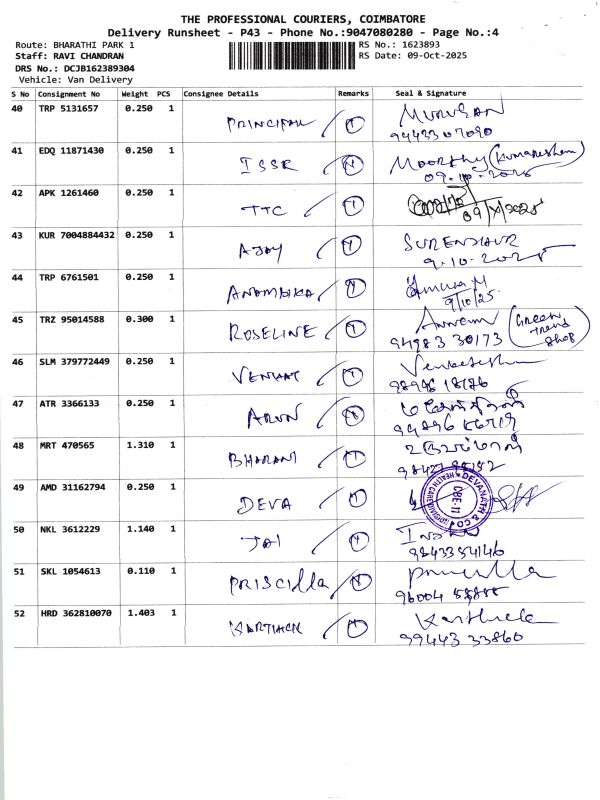 THE PROFESSIONAL COURIERS, COIMBATORE
Delivery Runsheet - P43 - Phone No.:9047080280 - Page No.:4
Route: BHARATHI PARK 1 RS No.: 1623893
Staff: RAVI CHANDRAN RS Date: 09-Oct-2025
DRS No.: DCJB162389304
Vehicle: Van Delivery
S No Consignment No Weight PCS Consignee Details Remarks Seal & Signature
40 TRP 5131657 0.250 1 PRINCIPAL MURUGAN
9443307090
41 EDQ 11871430 0.250 1 ISSR Moorthy (Kumareshen)
09.10.2025
42 APK 1261460 0.250 1 TTC
09/X/2025
43 KUR 7004884432 0.250 1 AJAY SURENDHUR
9.10.2025
44 TRP 6761501 0.250 1 ANAMBIKA
9/10/25.
45 TRZ 95014588 0.300 1 ROSELINE (Green Trend Shop)
94983 30173
46 SLM 379772449 0.250 1 VENKAT Venkatesh
47 ATR 3366133 0.250 1 ARUN
48 MRT 470565 1.310 1 BHARANI
49 AMD 31162794 0.250 1 DEVA DEVANATH & CO
CBE-11
50 NKL 3612229 1.140 1 JAI
9843354146
51 SKL 1054613 0.110 1 PRISCILLA Priscilla
52 HRD 362810070 1.403 1 KARTHICK Karthick
99443 33860